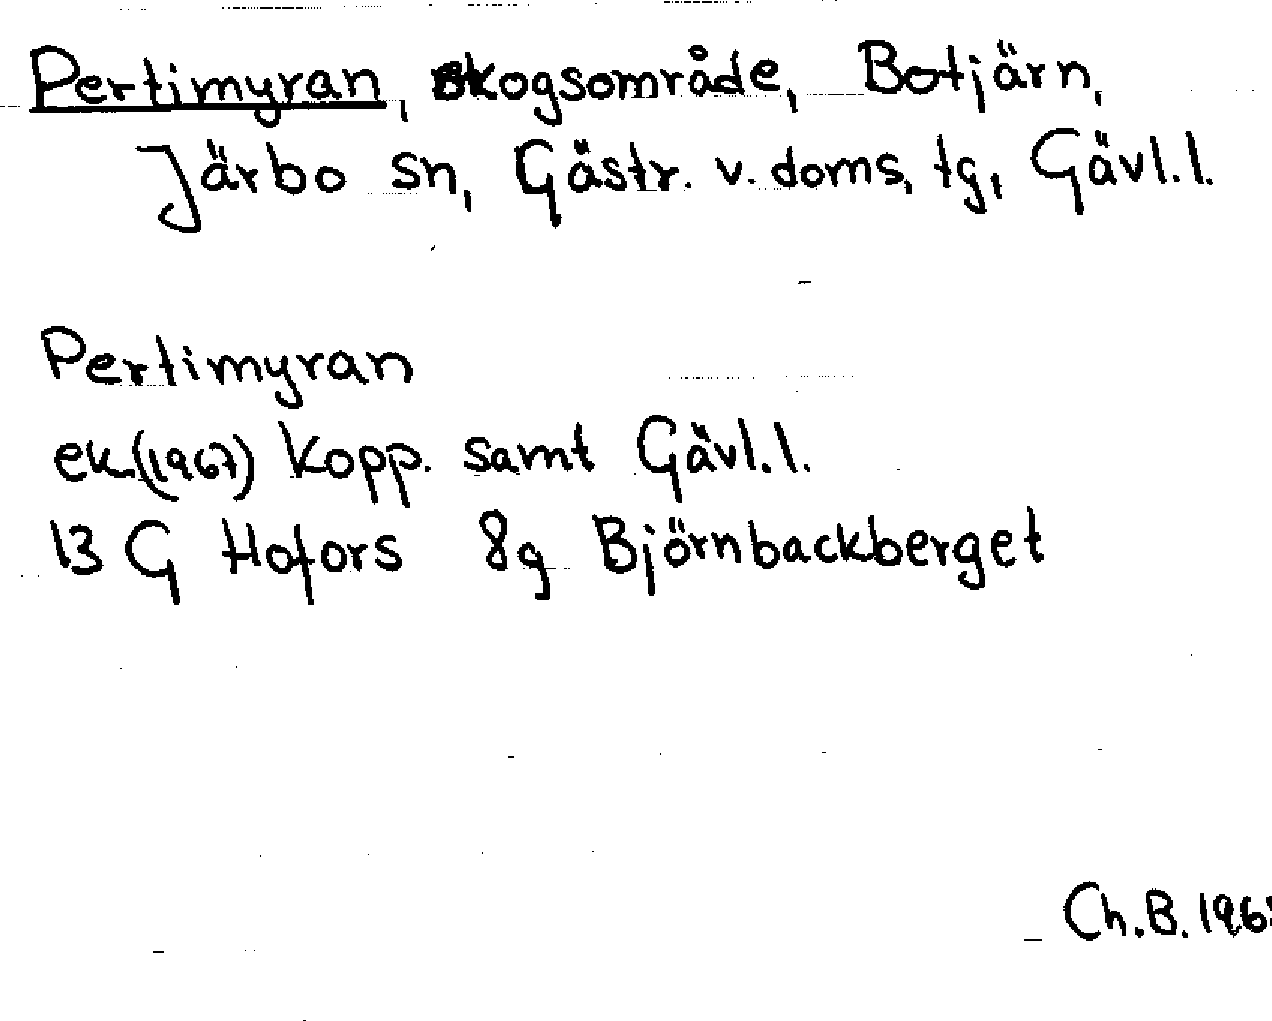 Pertimyran, skogsområde, Botjärn,
Järbo sn, Gästr. v. doms. tg, Gävl.l.
Pertimyran
ek(1967) Kopp. samt Gävl.l.
13 G Hofors 8g Björnbackberget
Ch.B.